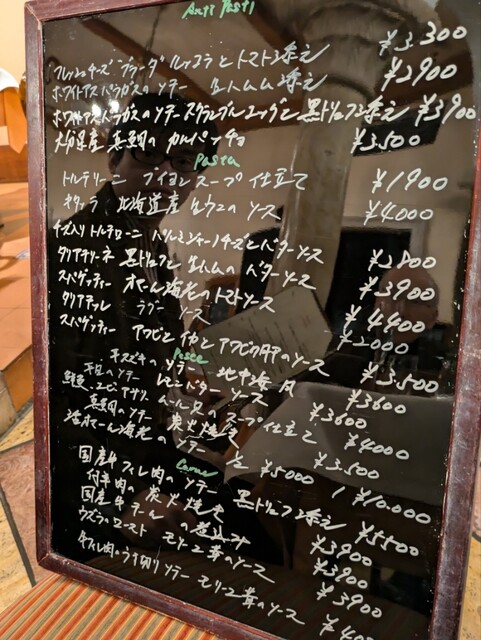 Anti Pasti
フレッシュチーズ ブラータ ルッコラとトマト添え ¥3.300
ホワイトアスパラガスのソテー 生ハム添え ¥2900
ホワイトアスパラガスのソテー スクランブルエッグと黒トリュフ添え ¥3900
大分県産 真鯛のカルパッチョ ¥3.500
Pasta
トルテリーニ ブイヨンスープ仕立て ¥1900
北海道産 生ウニのソース ¥4000
チーズ入りトルテローニ パルミジャーノチーズとバターソース ¥2800
タリアテリーネ 黒トリュフと生ハムのバターソース ¥3900
スパゲッティー オマール海老のトマトソース ¥4400
タリアテッレ ラグーソース ¥2000
スパゲッティー アワビとイカとアワビの肝のソース ¥3.500
Pesce
のソテー 地中海風 ¥3600
平目のソテー レモンバターソース ¥3.600
エビ、アサリ、ムール貝のスープ仕立て ¥4000
真鯛のソテー 炭火焼き ¥3.500
活オマール海老のソテー ½ ¥5000 1 ¥10.000
Carne
国産牛フィレ肉のソテー 黒トリュフ添え ¥5500
仔羊肉の炭火焼き ¥3900
国産牛テールの煮込み ¥3900
ウズラのロースト モリーユ茸のソース ¥3900
牛フィレ肉のうす切りソテー モリーユ茸のソース